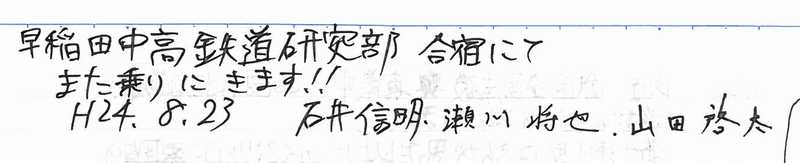 早稲田中高鉄道研究部 合宿にて
また乗りにきます!!
H24. 8. 23 石井信明. 瀬川 将也. 山田 啓太